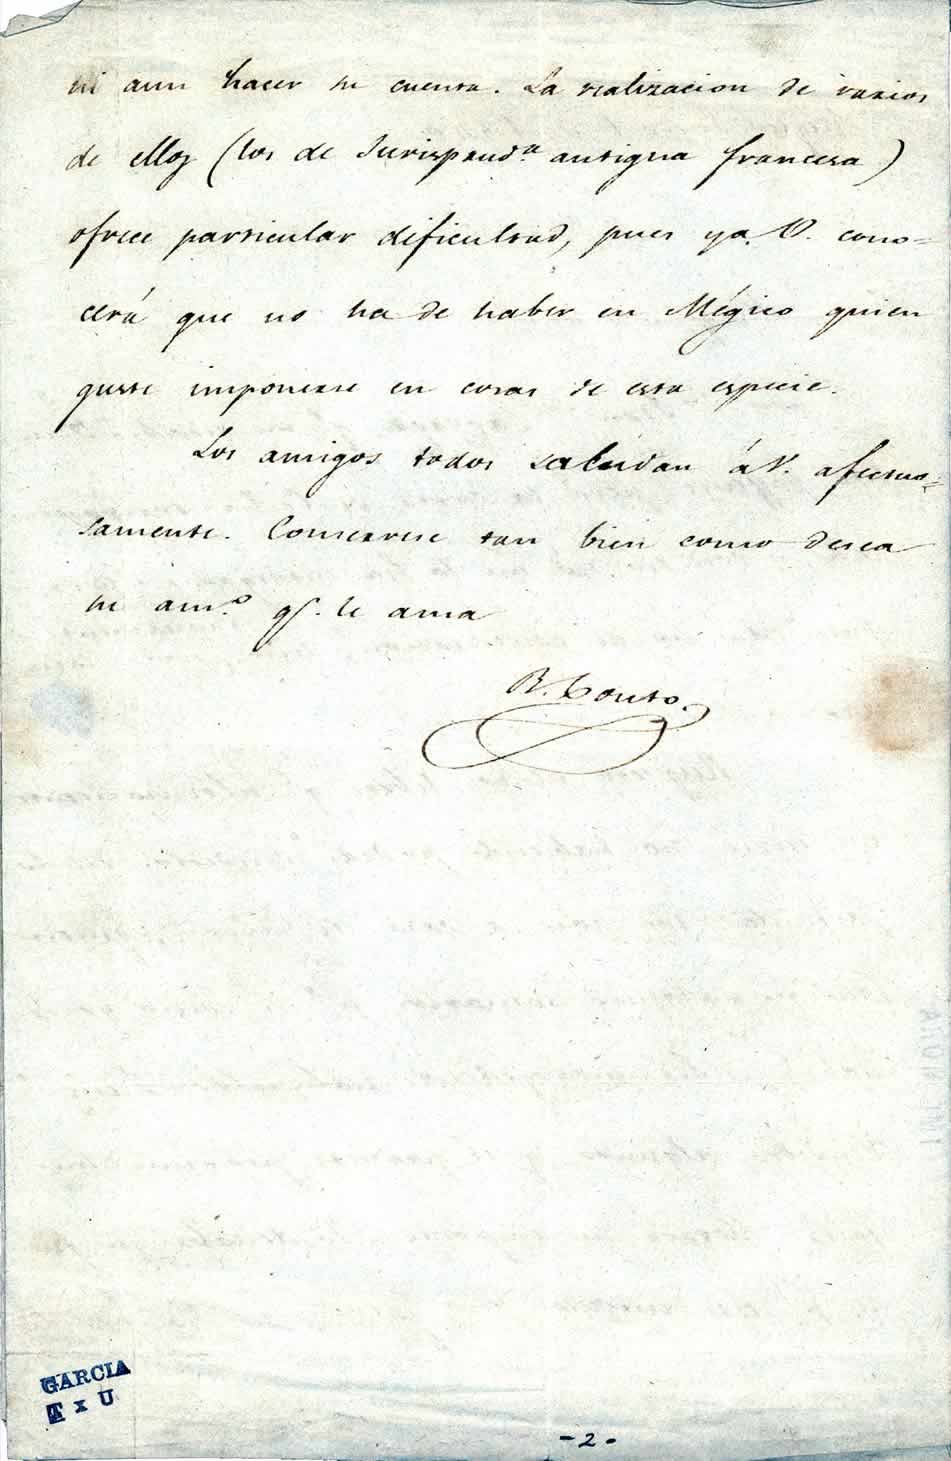 ni aun hacer su cuenta. La realizacion de varios
de ellos (los de Jurisprud.a antigua francesa)
ofrece particular dificultad, pues ya V. cono=
cerá que no ha de haber en Mégico quien
guste imponerse en cosas de esta especie.
Los amigos todos saludan á V. afectuo=
samente. Conservese tan bien como desea
su am.o q.e le ama
B. Couto.
GARCIA
T x U
-2-